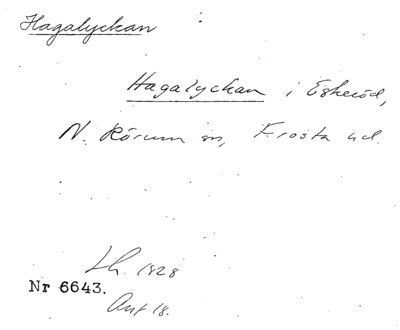 Hagalyckan
Hagalyckan i Eskeröd,
N. Rörum sn, Frosta hd.
Lh. 1828
Nr 6643.
Ant 18.